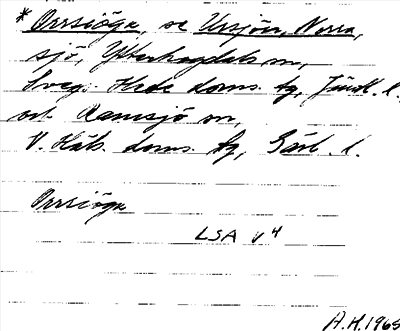 * Orrsiöga, se Ursjön, Norra,
sjö, Ytterhogdals sn,
Sveg. Hede doms. tg, Jämtl. l.
och Ramsjö sn,
V. Häls. doms. tg, Gävl. l.
Orrsiöga
LSA V 4
A.H. 1965